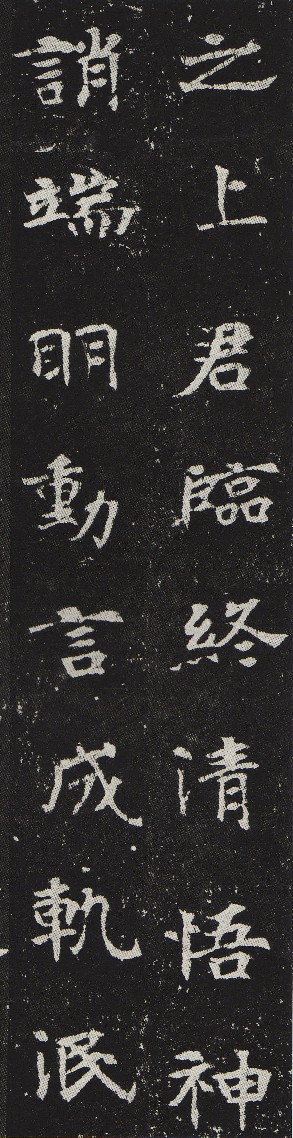 之上君臨終清悟神
誚端明動言成軌泯